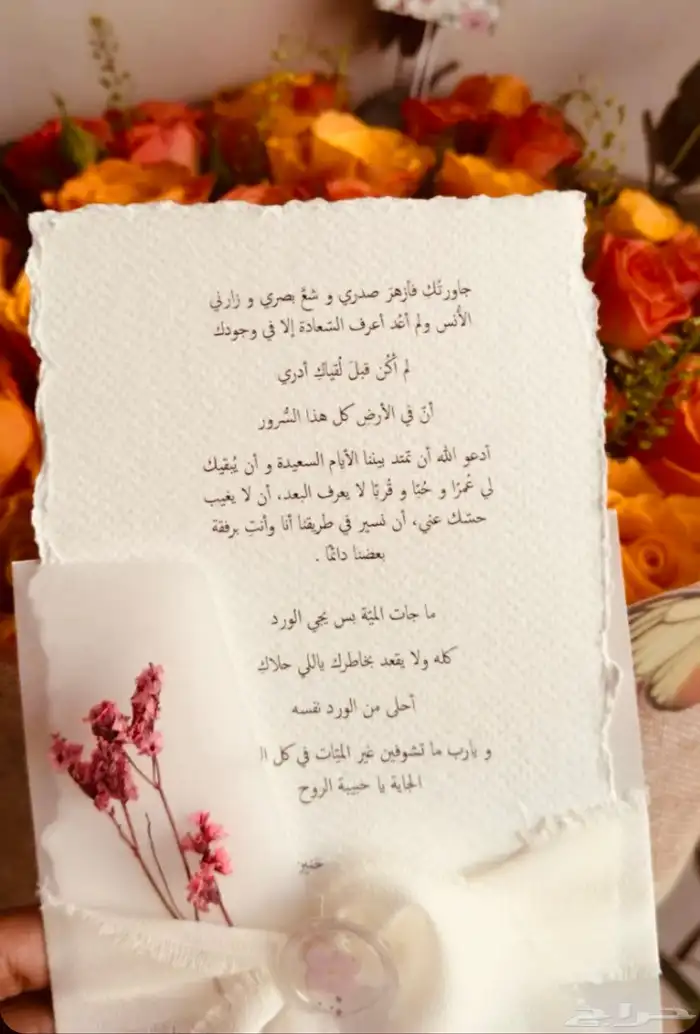 جاورتُكِ فأزهرَ صدري و شعَّ بصري و زارني
الأُنس ولم أعُد أعرف السّعادة إلا في وجودك
لم أكُن قبلَ لُقياكِ أدري
أنّ في الأرضِ كل هذا السُّرور
أدعو الله أن تمتد بيننا الأيام السعيدة و أن يُبقيك
لي عُمرًا و حُبًا و قُربًا لا يعرف البعد، أن لا يغيب
حسّك عني، أن نسير في طريقنا أنا وأنتِ برفقة
بعضنا دائمًا .
ما جات الميّة بس يجي الورد
كله ولا يقعد بخاطرك ياللي حلاكِ
أحلى من الورد نفسه
و يارب ما تشوفين غير الميّات في كل
الجاية يا حبيبة الروح
حراج